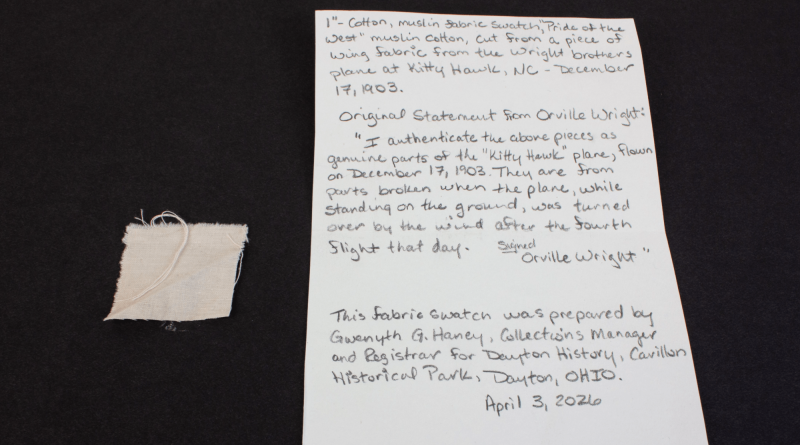 1"- Cotton, muslin fabric swatch, "Pride of the
West" muslin cotton, cut from a piece of
wing fabric from the Wright brothers
plane at Kitty Hawk, NC - December
17, 1903.
Original Statement from Orville Wright:
"I authenticate the above pieces as
genuine parts of the "Kitty Hawk" plane, flown
on December 17, 1903. They are from
parts broken when the plane, while
standing on the ground, was turned
over by the wind after the fourth
flight that day. Signed
Orville Wright"
This fabric swatch was prepared by
Gwenyth G. Haney, Collections Manager
and Registrar for Dayton History, Carillon
Historical Park, Dayton, OHIO.
April 3, 2026